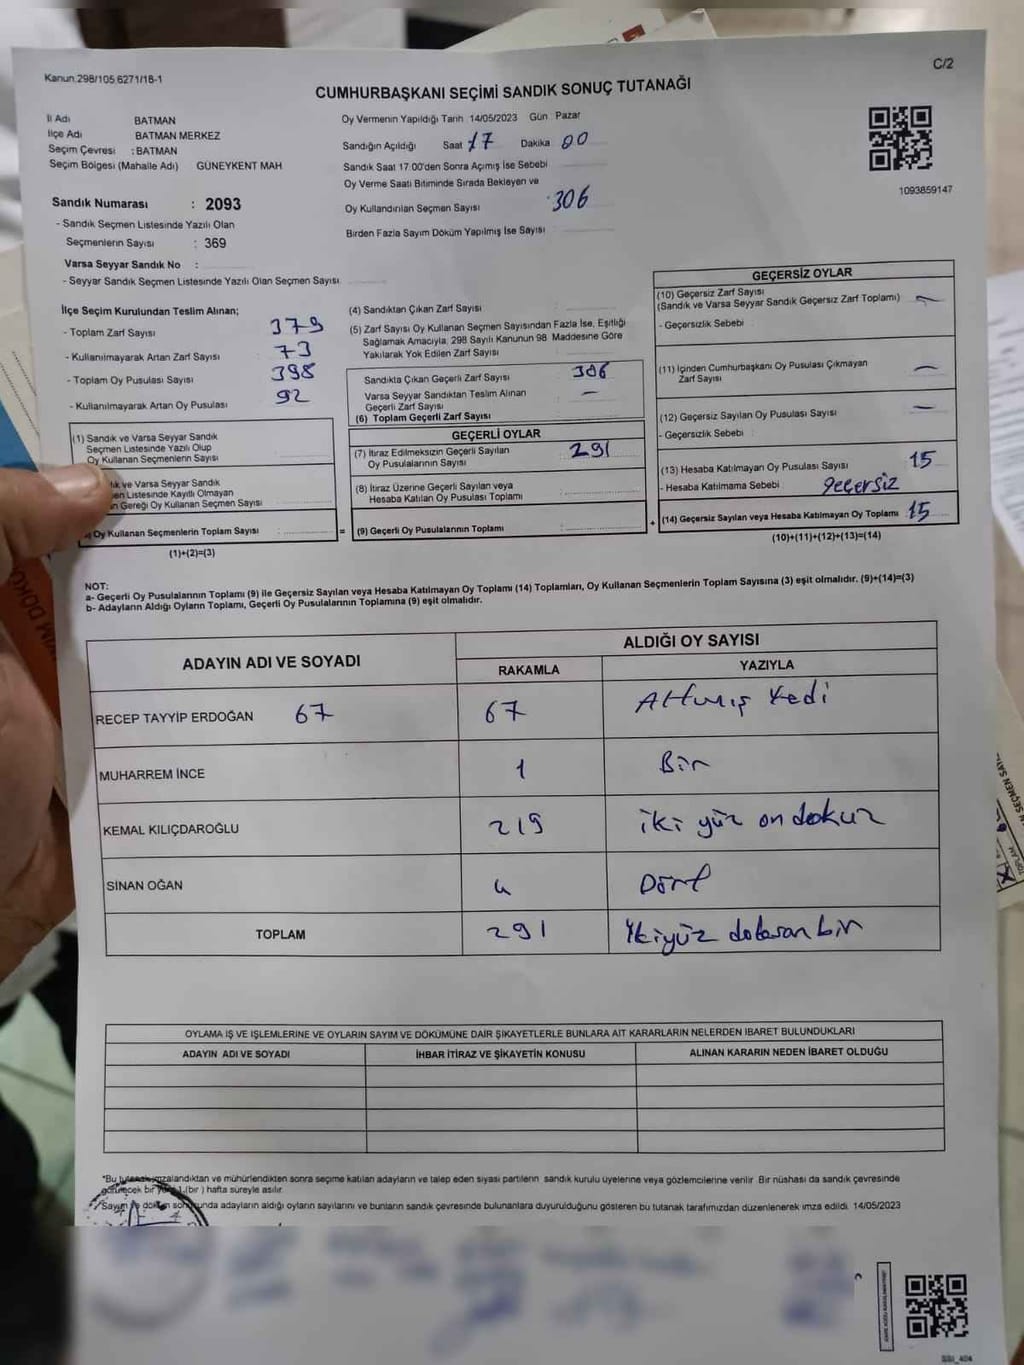 Kanun.298/105 6271/18-1
C/2
CUMHURBAŞKANI SEÇİMİ SANDIK SONUÇ TUTANAĞI
İl Adı BATMAN
İlçe Adı BATMAN MERKEZ
Seçim Çevresi : BATMAN
Seçim Bölgesi (Mahalle Adı) GÜNEYKENT MAH
Sandık Numarası : 2093
- Sandık Seçmen Listesinde Yazılı Olan
Seçmenlerin Sayısı : 369
Varsa Seyyar Sandık No :
- Seyyar Sandık Seçmen Listesinde Yazılı Olan Seçmen Sayısı
Oy Vermenin Yapıldığı Tarih 14/05/2023 Gün Pazar
Sandığın Açıldığı Saat 17 Dakika 00
Sandık Saat 17:00'den Sonra Açımış İse Sebebi
Oy Verme Saati Bitiminde Sırada Bekleyen ve
Oy Kullandırılan Seçmen Sayısı 306
Birden Fazla Sayım Döküm Yapılmış İse Sayısı
1093859147
İlçe Seçim Kurulundan Teslim Alınan;
- Toplam Zarf Sayısı 379
- Kullanılmayarak Artan Zarf Sayısı 73
- Toplam Oy Pusulası Sayısı 398
- Kullanılmayarak Artan Oy Pusulası 92
(1) Sandık ve Varsa Seyyar Sandık
Seçmen Listesinde Yazılı Olup
Oy Kullanan Seçmenlerin Sayısı
ve Varsa Seyyar Sandık
Listesinde Kayıtlı Olmayan
Gereği Oy Kullanan Seçmen Sayısı
Oy Kullanan Seçmenlerin Toplam Sayısı :
(1)+(2)=(3)
(4) Sandıktan Çıkan Zarf Sayısı
(5) Zarf Sayısı Oy Kullanan Seçmen Sayısından Fazla İse, Eşitliği
Sağlamak Amacıyla, 298 Sayılı Kanunun 98. Maddesine Göre
Yakılarak Yok Edilen Zarf Sayısı
Sandıkta Çıkan Geçerli Zarf Sayısı 306
Varsa Seyyar Sandıktan Teslim Alınan
Geçerli Zarf Sayısı —
(6) Toplam Geçerli Zarf Sayısı
GEÇERLİ OYLAR
(7) İtiraz Edilmeksizin Geçerli Sayılan
Oy Pusulalarının Sayısı 291
(8) İtiraz Üzerine Geçerli Sayılan veya
Hesaba Katılan Oy Pusulası Toplamı
= (9) Geçerli Oy Pusulalarının Toplamı :
GEÇERSİZ OYLAR
(10) Geçersiz Zarf Sayısı
(Sandık ve Varsa Seyyar Sandık Geçersiz Zarf Toplamı) —
- Geçersizlik Sebebi
(11) İçinden Cumhurbaşkanı Oy Pusulası Çıkmayan
Zarf Sayısı —
(12) Geçersiz Sayılan Oy Pusulası Sayısı —
- Geçersizlik Sebebi
(13) Hesaba Katılmayan Oy Pusulası Sayısı 15
- Hesaba Katılmama Sebebi geçersiz
+ (14) Geçersiz Sayılan veya Hesaba Katılmayan Oy Toplamı 15
(10)+(11)+(12)+(13)=(14)
NOT:
a- Geçerli Oy Pusulalarının Toplamı (9) ile Geçersiz Sayılan veya Hesaba Katılmayan Oy Toplamı (14) Toplamları, Oy Kullanan Seçmenlerin Toplam Sayısına (3) eşit olmalıdır. (9)+(14)=(3)
b- Adayların Aldığı Oyların Toplamı, Geçerli Oy Pusulalarının Toplamına (9) eşit olmalıdır.
ADAYIN ADI VE SOYADI ALDIĞI OY SAYISI
RAKAMLA YAZIYLA
RECEP TAYYİP ERDOĞAN 67 67 Altmış Yedi
MUHARREM İNCE 1 Bir
KEMAL KILIÇDAROĞLU 219 iki yüz on dokuz
SİNAN OĞAN 4 Dört
TOPLAM 291 İkiyüz doksan bir
OYLAMA İŞ VE İŞLEMLERİNE VE OYLARIN SAYIM VE DÖKÜMÜNE DAİR ŞİKAYETLERLE BUNLARA AİT KARARLARIN NELERDEN İBARET BULUNDUKLARI
ADAYIN ADI VE SOYADI İHBAR İTİRAZ VE ŞİKAYETİN KONUSU ALINAN KARARIN NEDEN İBARET OLDUĞU
*Bu imzalandıktan ve mühürlendikten sonra seçime katılan adayların ve talep eden siyasi partilerin sandık kurulu üyelerine veya gözlemcilerine verilir. Bir nüshası da sandık çevresinde
bir (bir) hafta süreyle asılır.
*Sayım adayların aldığı oyların sayılarını ve bunların sandık çevresinde bulunanlara duyurulduğunu gösteren bu tutanak tarafımızdan düzenlenerek imza edildi. 14/05/2023